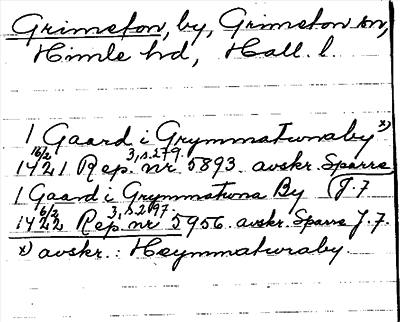 Grimeton, by, Grimeton sn,
Himle hd, Hall. l.
1 Gaard i Grymmatunaby x)
16/2 3, s. 279.
1421 Rep. nr. 5893. avskr. Sparre
1 Gaard i Grymmatuna By (J. 7
6/2 3, s. 297.
1422 Rep. nr 5956. avskr. Sparre J. 7.
x) avskr.: Heymmatunaby.